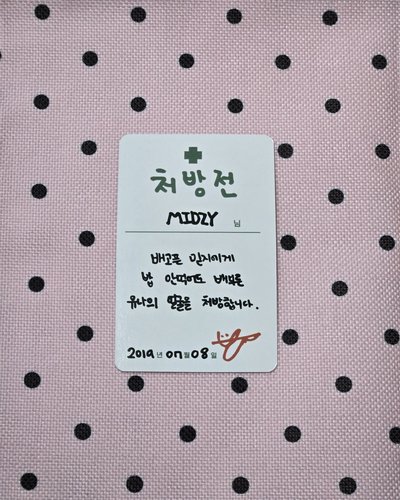 처방전
MIDZY 님
배고픈 믿지에게
밥 안먹어도 배부를
유나의 얼굴을 처방합니다.
2019 년 07 월 08 일